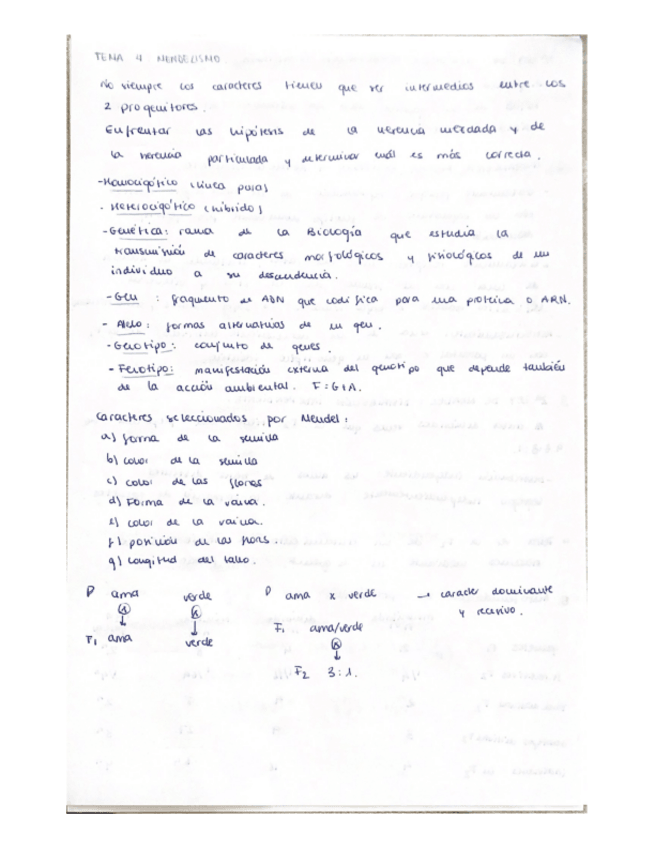 TEMA 4 MENDELISMO
No siempre los caracteres tienen que ser intermedios entre los
2 progenitores.
Enfrentar las hipótesis de la herencia mezclada y de
la herencia particulada y determinar cuál es más correcta.
-Homocigótico (línea pura)
. Heterocigótico (híbrido)
-Genética: rama de la Biología que estudia la
transmisión de caracteres morfológicos y fisiológicos de un
individuo a su descendencia.
-Gen : fragmento de ADN que codifica para una proteína o ARN.
- Alelo: formas alternativas de un gen.
-Genotipo: conjunto de genes.
- Fenotipo: manifestación externa del genotipo que depende también
de la acción ambiental. F=G+A.
Caracteres seleccionados por Mendel:
a) forma de la semilla
b) color de la semilla
c) color de las flores
d) Forma de la vaina.
e) color de la vaina.
f) posición de las flores.
g) longitud del tallo.
P ama verde P ama x verde → caracter dominante
y recesivo.
F1 ama verde F1 ama/verde
F2 3:1.